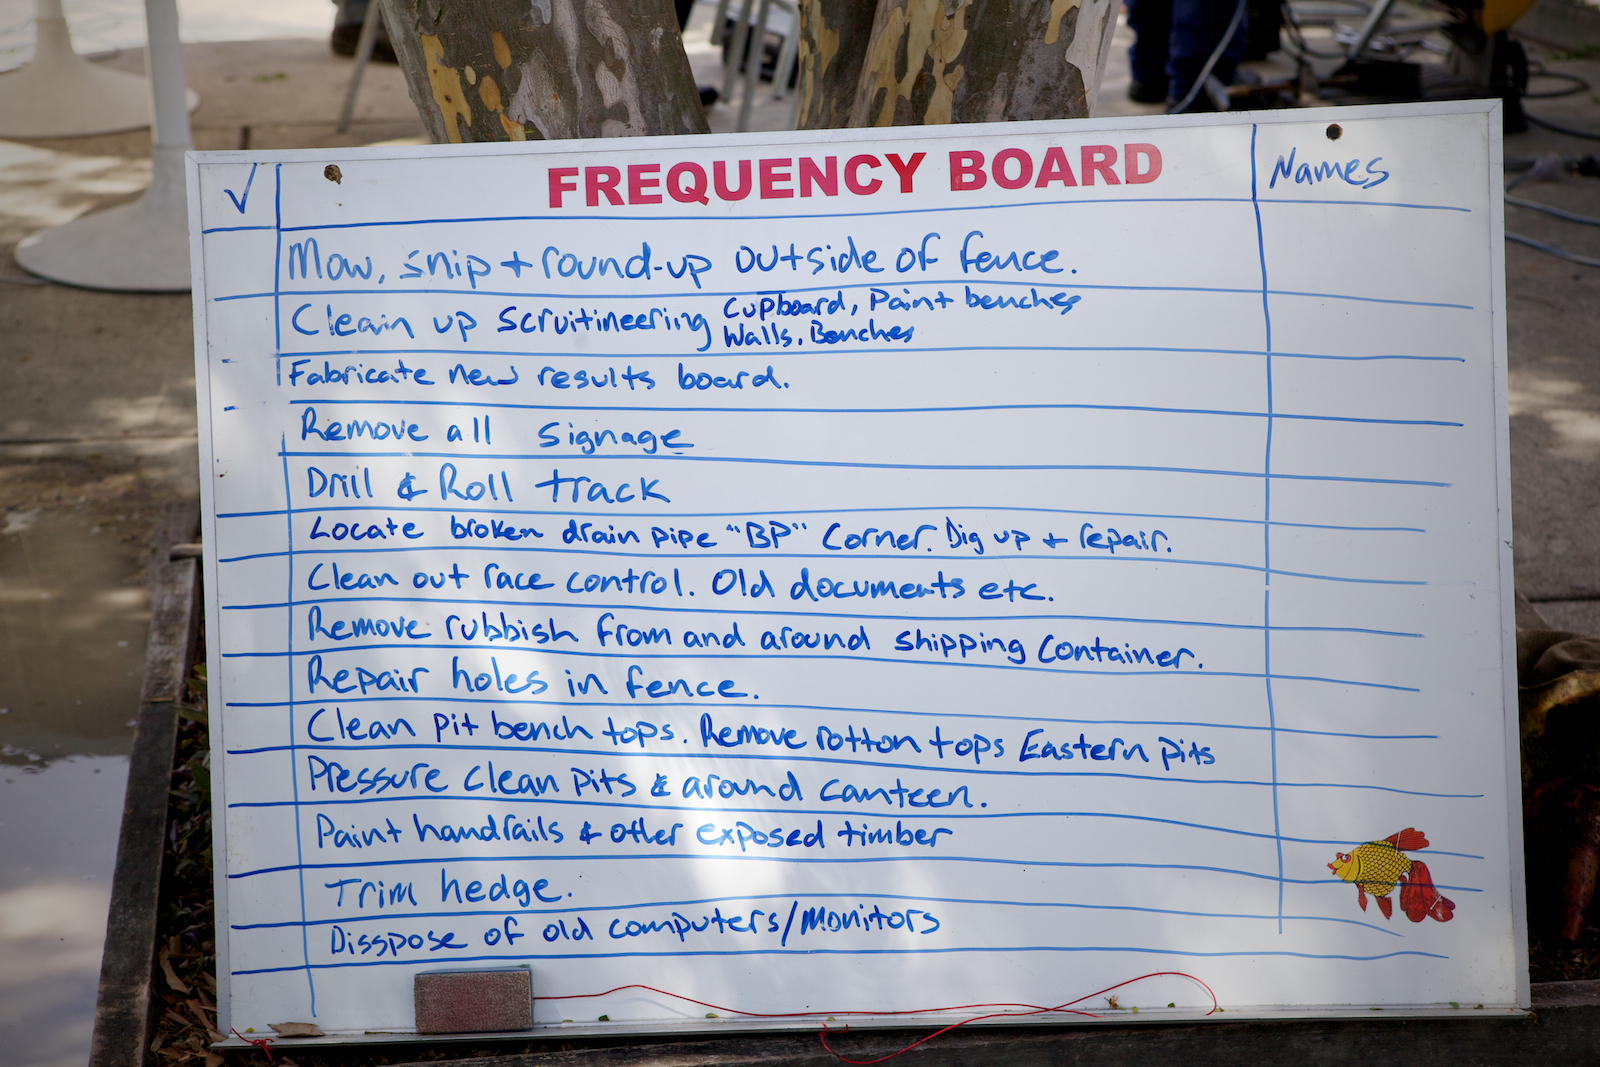 ✓ FREQUENCY BOARD Names
Mow, snip + round-up outside of fence.
Clean up scruitineering Cupboard, Paint benches
Walls, Benches
Fabricate new results board.
Remove all signage
Drill & Roll track
Locate broken drain pipe "BP" Corner. Dig up + repair.
Clean out race control. Old documents etc.
Remove rubbish from and around shipping container.
Repair holes in fence.
Clean pit bench tops. Remove rotton tops Eastern pits
Pressure clean pits & around canteen.
Paint handrails & other exposed timber
Trim hedge.
Disspose of old computers/monitors